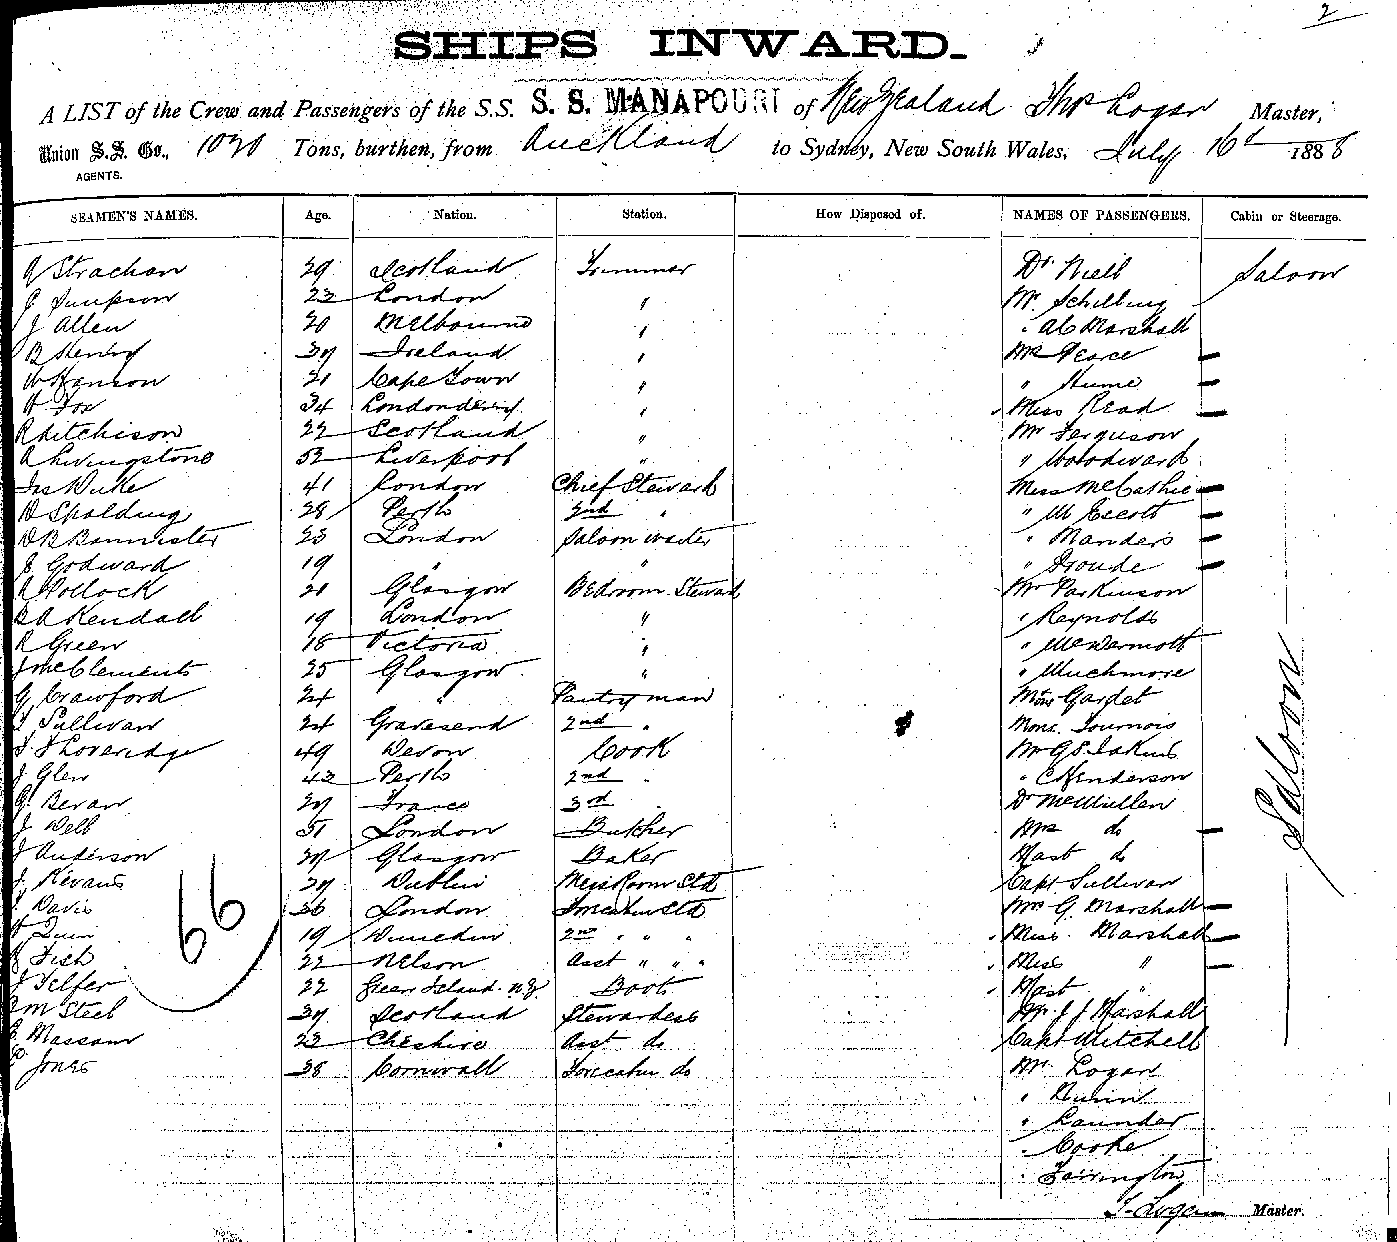 2
SHIPS INWARD.
A LIST of the Crew and Passengers of the S.S. S. S. MANAPOURI of New Zealand Thos Logan Master,
Union S.S. Co., 1020 Tons, burthen, from Auckland to Sydney, New South Wales, July 16th 1888
AGENTS.
SEAMEN'S NAMES. Age. Nation. Station. How Disposed of. NAMES OF PASSENGERS. Cabin or Steerage.
Strachan 29 Scotland Trimmer Dr. Saloon
J Simpson 23 London " Mr. Schilling
J Allen 20 Melbourne " " Marshall
B Henry 37 Ireland " Mrs Pearce —
W Hanson 21 Cape Town " " Hume —
H Fox 34 Londonderry " Miss Read —
R Aitchison 22 Scotland " Mr Ferguson
A Livingstone 52 Liverpool " " Woodward
Jas Duke 41 London Chief Steward Miss McCathie —
D Spalding 28 Perth 2nd " " M Escott —
D B Bannister 23 London Saloon waiter " Manders —
Godward 19 " " " Froude —
Pollock 21 Glasgow Bedroom Steward Mr Parkinson
Kendall 19 London " " Reynolds
R Green 18 Victoria " " McDermott
J McClements 25 Glasgow " " Muchmore
G Crawford 24 Pantry man Mons Gardet
Sullivan 24 Gravesend 2nd " Mons. Tournois
Loveridge 49 Devon Cook Mr G S
J Glen 42 Perth 2nd " " Henderson
G. Bevan 27 France 3rd " Dr McMullen
J Webb 51 London Butcher Mrs do —
J Anderson 37 Glasgow Baker Mast do
J. Kevans 37 Dublin Mess Room Std Capt Sullivan
Davis 26 London Forecabin Std Mrs G. Marshall —
Quin 19 Dunedin 2nd " " " Miss Marshall —
Fish 22 Nelson Asst " " " Miss " —
J Telfer 22 Green Island N.Z. Boots Mast "
M Steel 37 Scotland Stewardess Mr J J Marshall
Massam 23 Cheshire Asst do Capt Mitchell
Jones 38 Cornwall Forecabin do Mr Logan
" Dunn
" Launder
" Cooke
" Fairrington
Saloon
66
T. Logan Master.